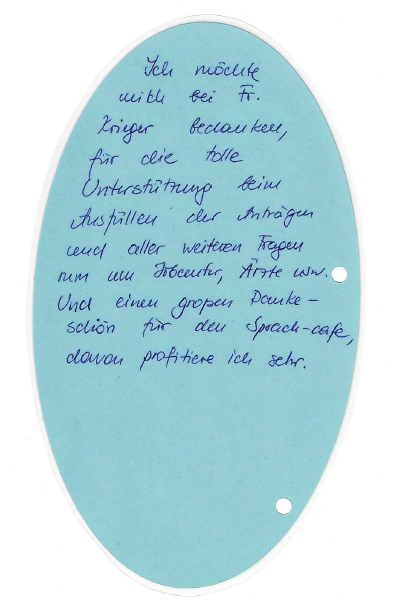 Ich möchte
mich bei Fr.
Krieger bedanken,
für die tolle
Unterstützung beim
Ausfüllen der Anträgen
und aller weiteren Fragen
rum um Jobcenter, Ärzte usw.
Und einen großen Danke-
schön für den Sprach-cafe,
davon profitiere ich sehr.